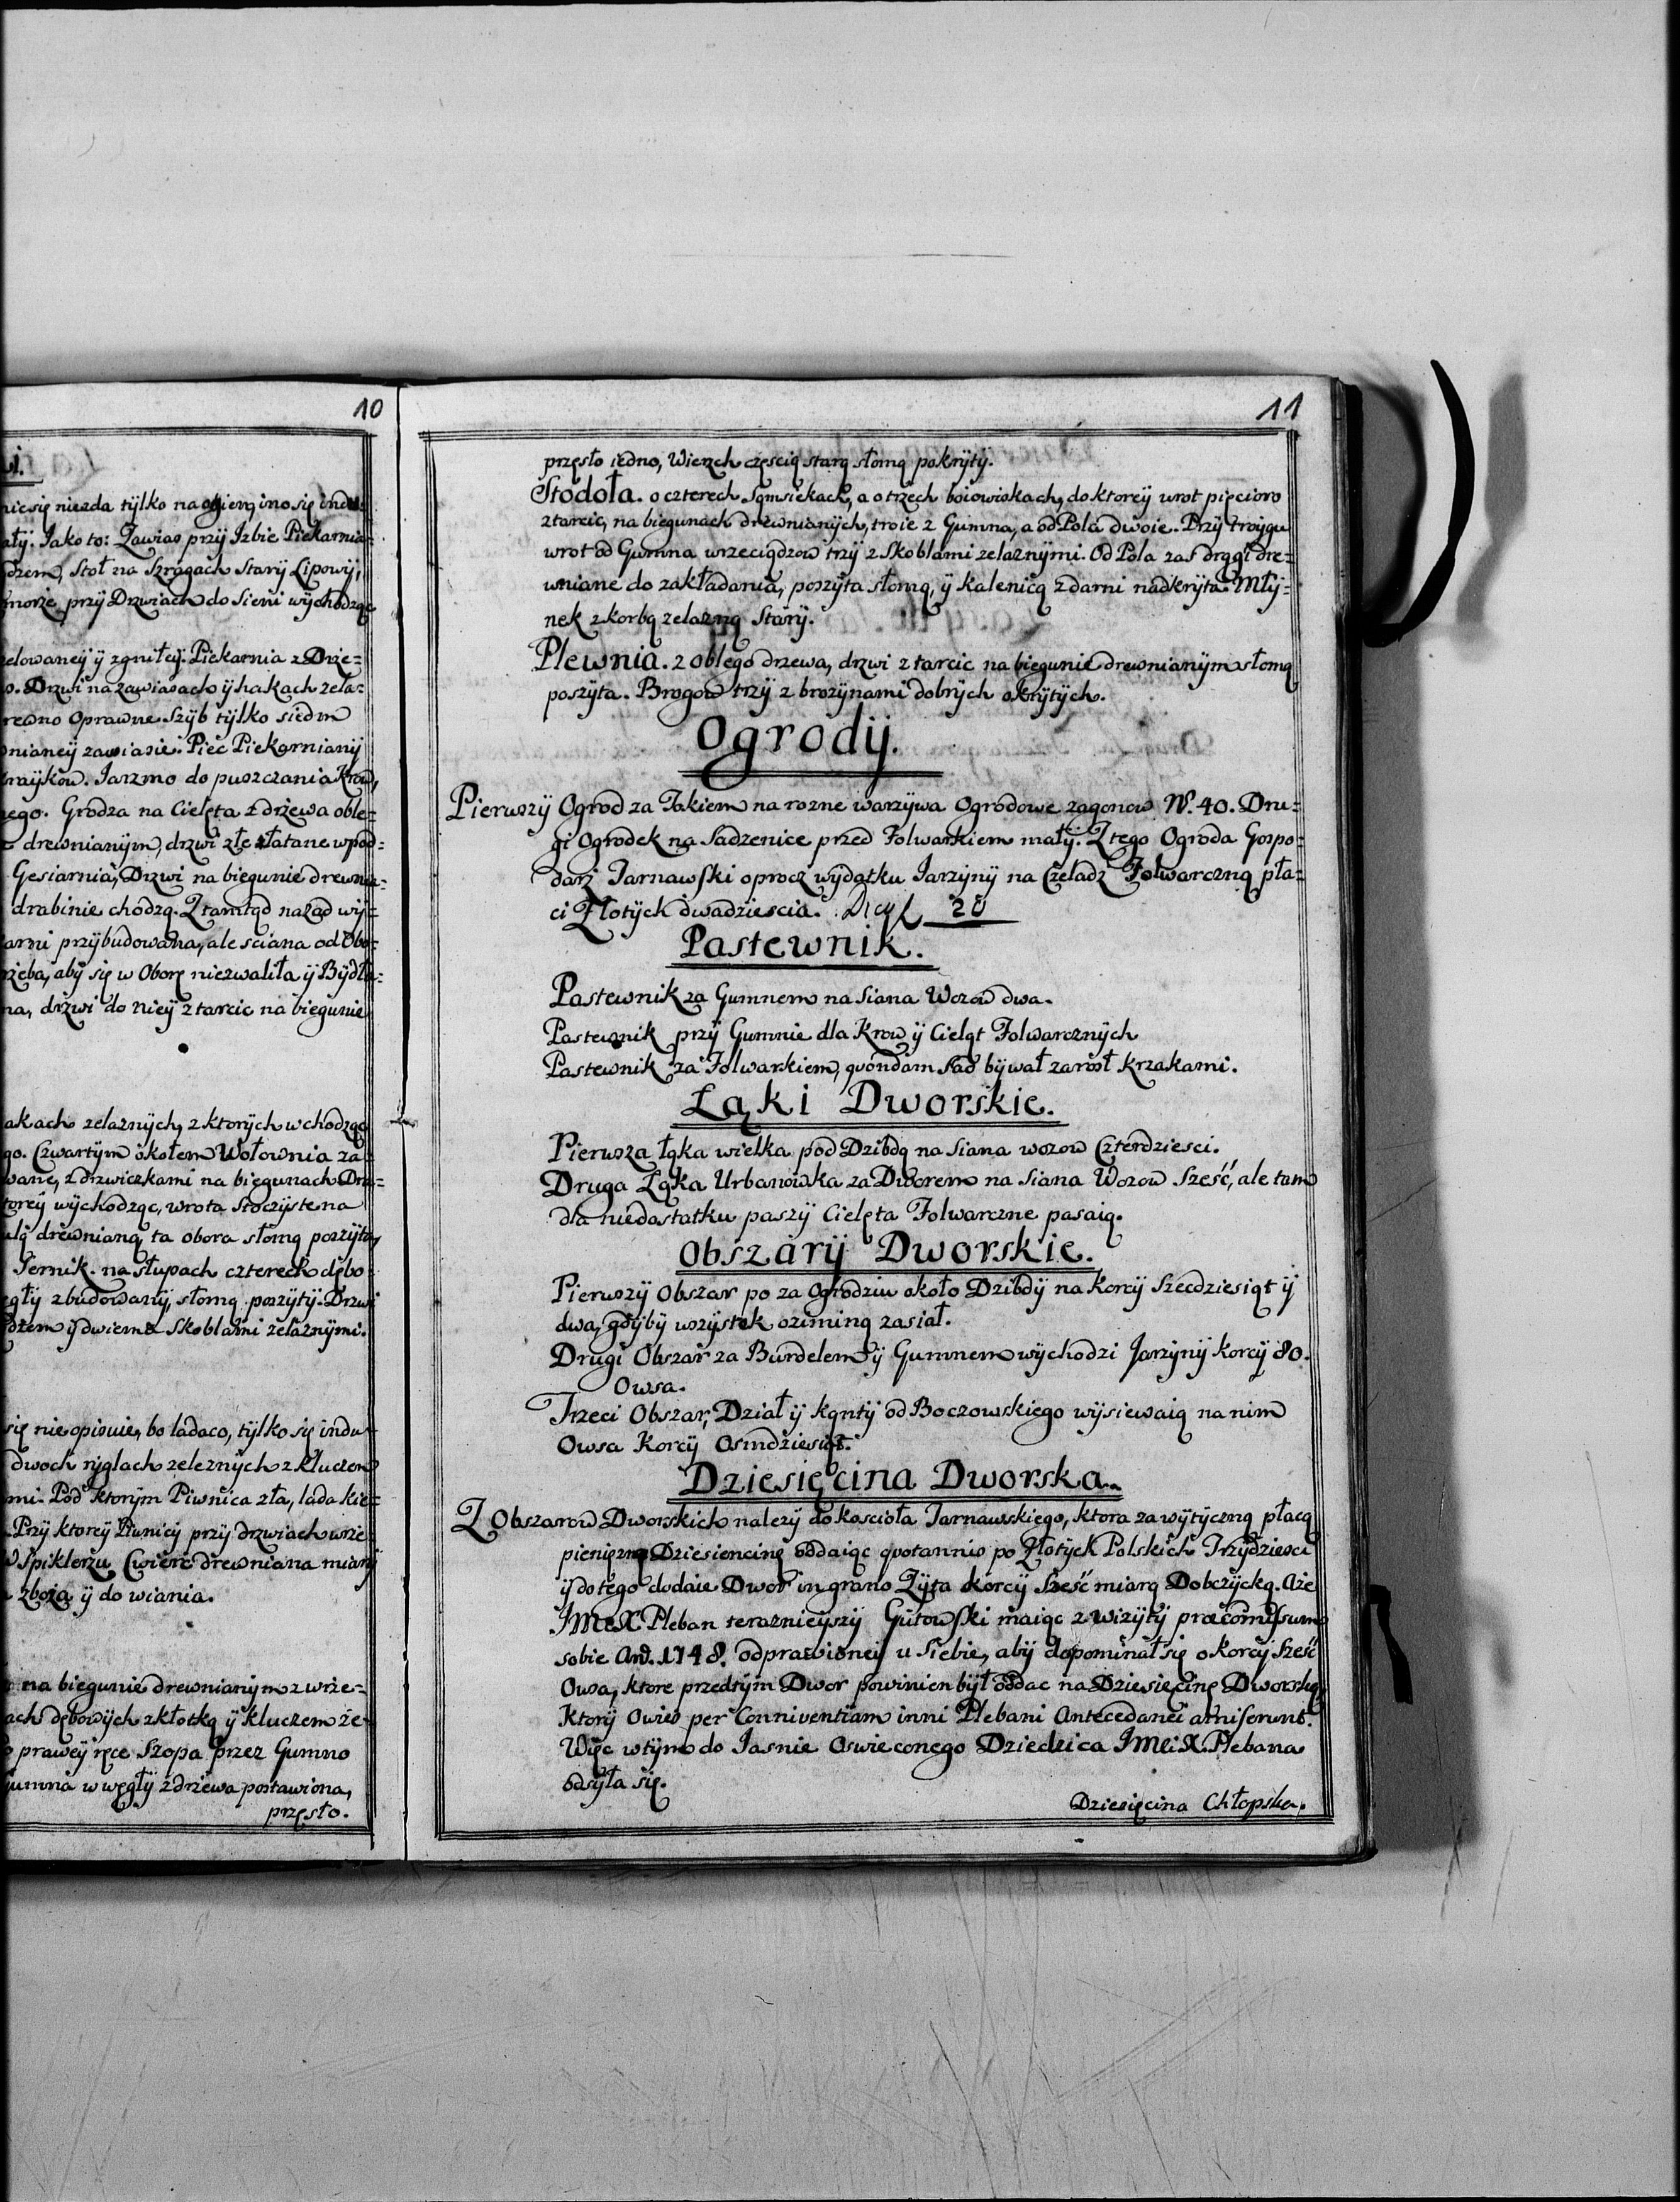 10
i.
nicsię niezda tylko na ogień ino się indu=
ały. Jako to: Zawias przy Izbie Piekarnia=
dzem, Stoł na Szragach Stary Lipowy,
przy Drzwiach do Sieni wychodząc
zelowaney y zgniłey. Piekarnia z Drze=
o. Drzwi na zawiasach y hakach zela=
rewno Oprawne Szyb tylko siedm
nianey zawiasie. Piec Piekarniany
Jarzmo do puszczania Krow,
nego. Grodza na Cielęta z drzewa oble=
drewnianym, drzwi złe złatane wpod=
Gesiarnia, Drzwi na biegunie drewnia=
drabinie chodzą. Z tamtąd nazad wy=
arni przybudowana, ale sciana od Obo=
rzeba, aby się w Oborę niezwaliła y Bydła=
na, drzwi do niey z tarcic na biegunie
akach zelaznych, z ktorych wchodząc
go. Czwartym okołem Wołownia za=
wane, z drzwiczkami na biegunach Dre=
torey wychodząc, wrota Stoczyste na
ulą drewnianą, ta obora słomą poszyta,
Jernik. na słupach czterech dębo=
egły zbudowany, słomą poszyty. Drzwi
dzem y dwiema Skoblami żelaznymi.
się nieopisuie, bo ladaco, tylko się indu=
dwoch ryglach zeleznych z kluczem
mi. Pod ktorym Piwnica zła, lada kie=
Przy ktorey Piwnicy przy drzwiach wrze=
W Spiklerzu Cwierc drewniana miary
zboża y do wiania.
na biegunie drewnianym z wrze=
ach dębowych z kłotką y kluczem że=
prawey ręce Szopa przez Gumno
umna w węgły z drzewa postawiona,
przęsło.
11
przęsło iedno, Wierzch częscią starą słomą pokryty.
Stodoła. o czterech Sąmsiekach, a o trzech boiowiskach, do ktorey wrot pięcioro
z tarcic, na biegunach drewnianych, troie z Gumna, a od Pola dwoie. Przy troygu
wrot od Gumna wrzeciądzow trzy z Skoblami zelaznymi. Od Pola zas drągi dre=
wniane do zakładania, poszyta słomą, y kalenicą z darni nadkryta. Mły=
nek z korbą zelazną Stary.
Plewnia. z oblego drzewa, drzwi z tarcic na biegunie drewnianym słomą
poszyta. Brogow trzy z brozynami dobrych okrytych.
Ogrody.
Pierwszy Ogrod za Takiem na rozne warzywa Ogrodowe zagonow N. 40. Dru=
gi Ogrodek na Sadzenice przed Folwarkiem mały. Z tego Ogroda Gospo=
darz Tarnawski oprocz wydatku Jarzyny na Czeladz Folwarczną pła=
ci Złotych dwadziescia. 20
Pastewnik.
Pastewnik za Gumnem na Siana Wozow dwa.
Pastewnik przy Gumnie dla Krow y Cieląt Folwarcznych
Pastewnik za Folwarkiem, quondam Sad bywał zarosł krzakami.
Łąki Dworskie.
Pierwsza łąka wielka pod Dzibdą na Siana wozow Czterdziesci.
Druga Łąka Urbanowka za Dworem na Siana Wozow Sześć, ale tam
dla niedostatku paszy Cielęta Folwarczne pasaią.
Obszary Dworskie.
Pierwszy Obszar po za Ogrodziu około Dzibdy na Korcy Szescdziesiąt y
dwa, gdyby wszystek oziminą zasiał.
Drugi Obszar za Burdelem y Gumnem wychodzi Jarzyny Korcy 80.
Owsa.
Trzeci Obszar, Dział y kąnty od Boczowskiego wysiewaią na nim
Owsa Korcy Osmdziesiąt.
Dziesięcina Dworska.
Z Obszarow Dworskich nalezy do Koscioła Tarnawskiego, ktora za wytyczną płacą
pieniężną Dziesiencinę oddaiąc quotannis po Złotych Polskich Trzydziesci
y do tego dodaie Dwor in grano Żyta Korcy Sześć miarą Dobczycką. Aże
JMCX. Pleban teraznieyszy Gutowski maiąc z wizyty præcomissum
sobie An. 1748. odprawioney u Siebie, aby dopominał się o Korcy Sześć
Owsa, ktore przedtym Dwor powinien był oddac na Dziesięcinę Dworską
Ktory Owies per Conniventiam inni Plebani Antecedanei amiserunt.
Więc wtym do Jasnie Oswieconego Dziedzica JMCiX. Plebana
odsyła się.
Dziesięcina Chłopska.